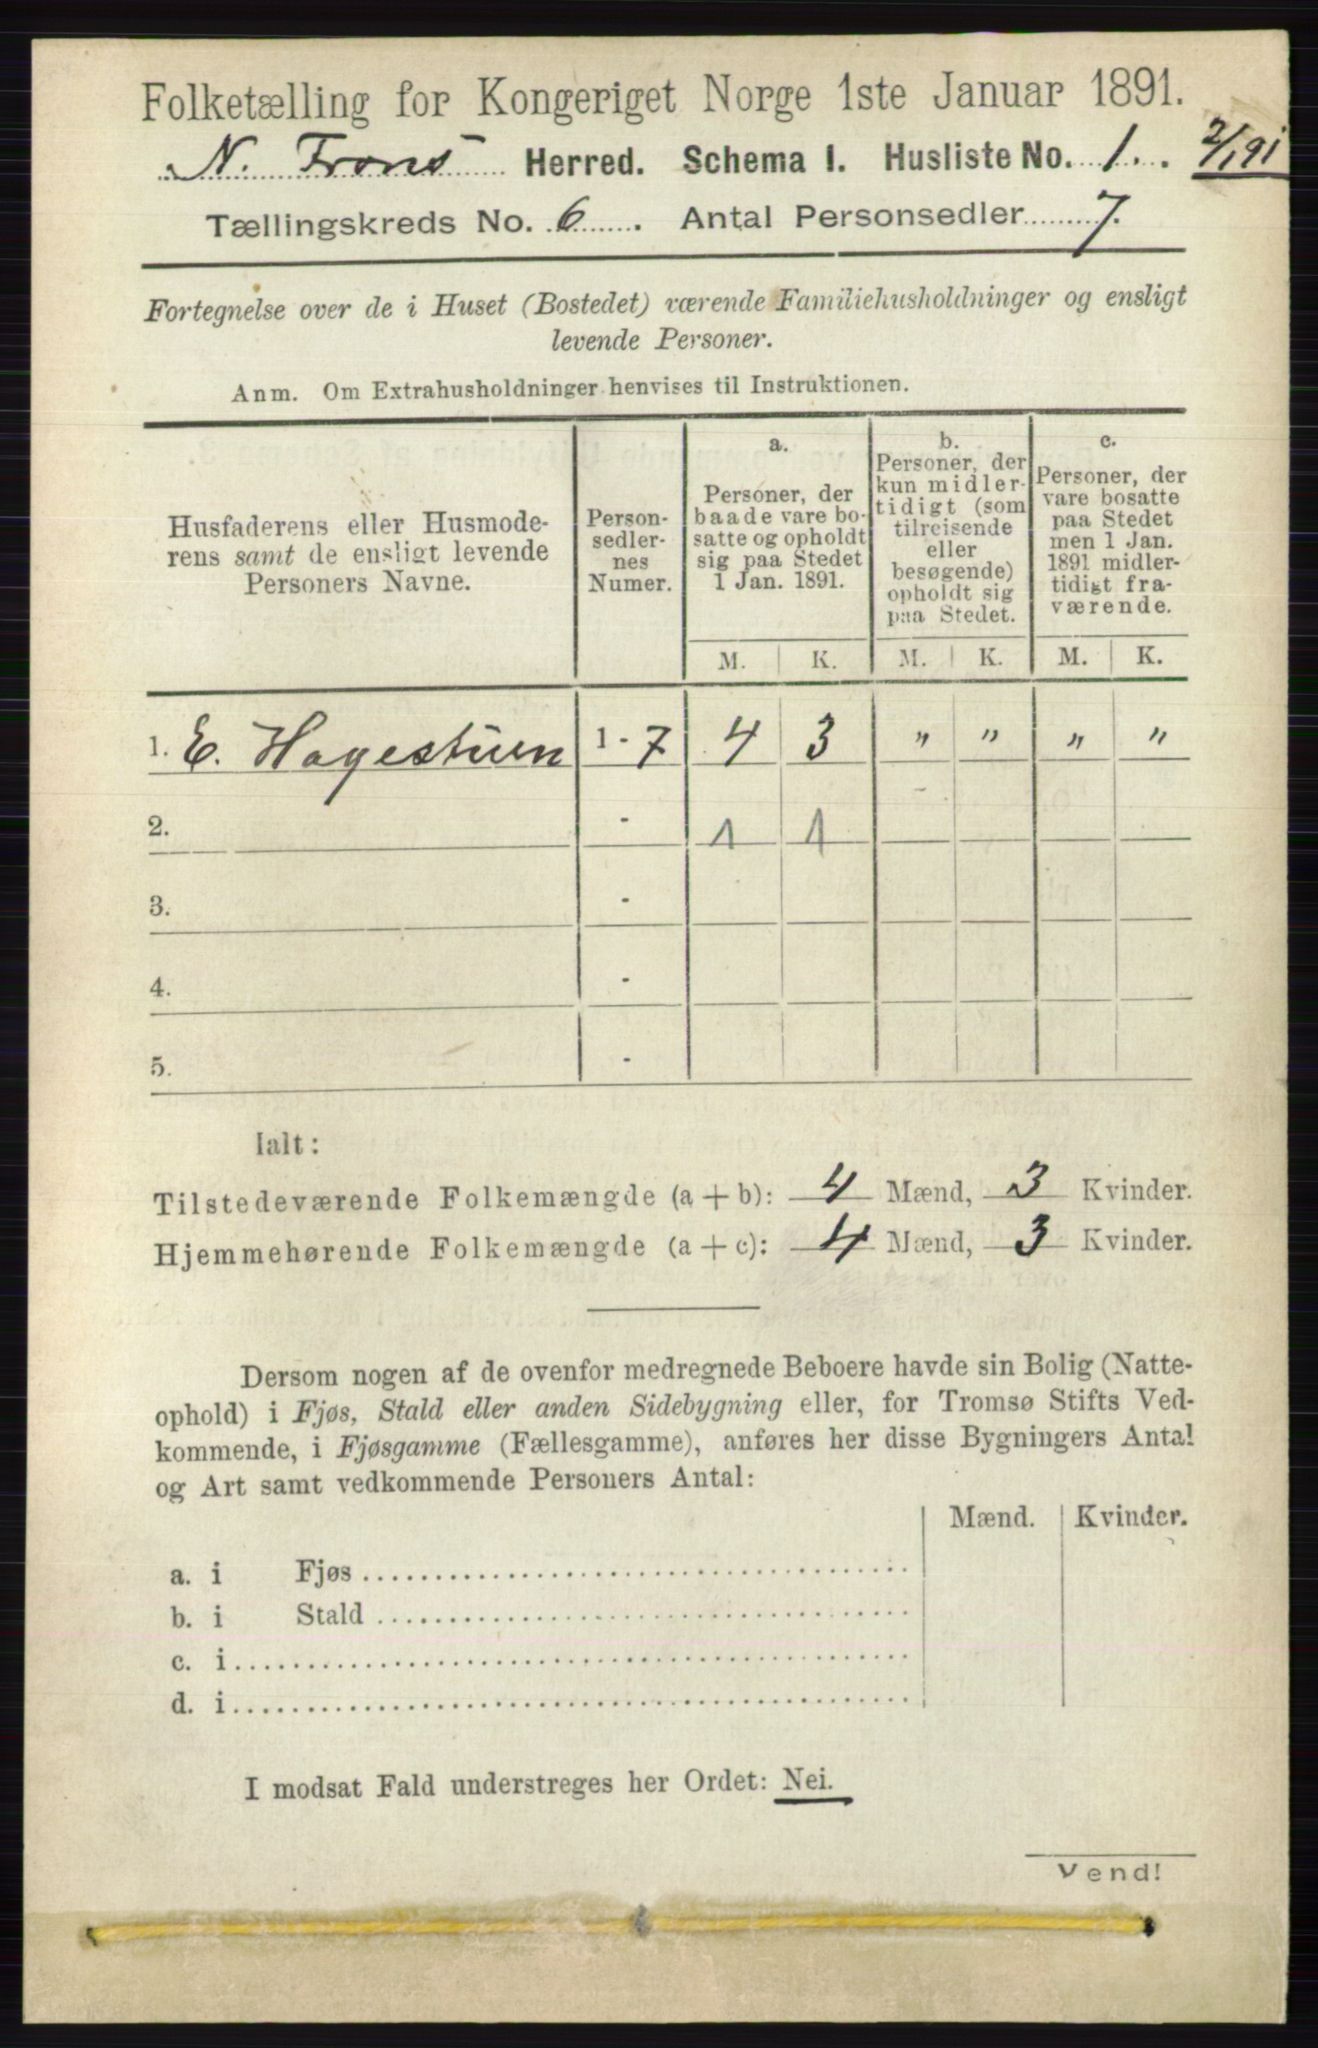 Folketælling for Kongeriget Norge 1ste Januar 1891.
N. Frons Herred. Schema I. Husliste No. 1. 2/1 91
Tællingskreds No. 6. Antal Personsedler 7.
Fortegnelse over de i Huset (Bostedet) værende Familiehusholdninger og ensligt
levende Personer.
Anm. Om Extrahusholdninger henvises til Instruktionen.
Husfaderens eller Husmode-
rens samt de ensligt levende
Personers Navne.
Person-
sedler-
nes
Numer.
a.
Personer, der
baade vare bo-
satte og opholdt
sig paa Stedet
1 Jan. 1891.
b.
Personer, der
kun midler-
tidigt (som
tilreisende
eller
besøgende)
opholdt sig
paa Stedet.
c.
Personer, der
vare bosatte
paa Stedet
men 1 Jan.
1891 midler-
tidigt fra-
værende.
M. K. M. K. M. K.
1. E. Hagestuen 1 - 7 4 3 " " " "
2. - 1 1
3. -
4. -
5. -
Ialt:
Tilstedeværende Folkemængde (a + b): 4 Mænd, 3 Kvinder.
Hjemmehørende Folkemængde (a + c): 4 Mænd, 3 Kvinder.
Dersom nogen af de ovenfor medregnede Beboere havde sin Bolig (Natte-
ophold) i Fjøs, Stald eller anden Sidebygning eller, for Tromsø Stifts Ved-
kommende, i Fjøsgamme (Fællesgamme), anføres her disse Bygningers Antal
og Art samt vedkommende Personers Antal:
Mænd. Kvinder.
a. i Fjøs
b. i Stald
c. i
d. i
I modsat Fald understreges her Ordet: Nei.
Vend!